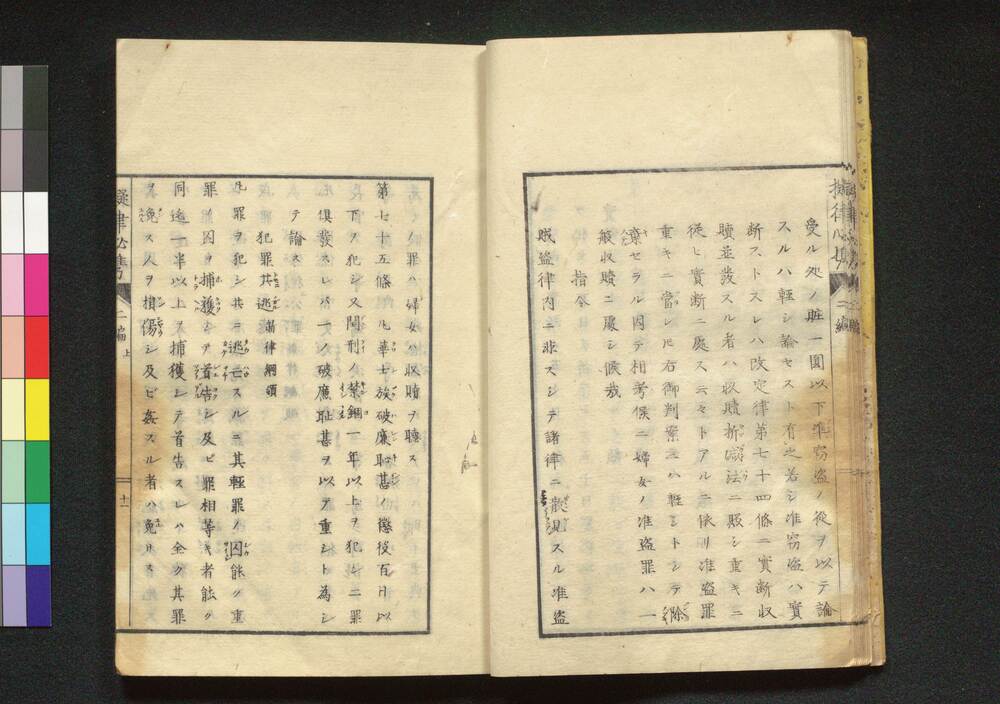 受ル処ノ贓一圓以下准窃盗ノ後ヲ以テ論
スルハ輕シ論セスト有之若シ准窃盗ハ實
断ストスレハ改定律第七十四條ニ實断収
贖並發スル者ハ収贖折減法ニ照シ重キニ
從ヒ實断ニ處ス云々トアルニ依リ准盗罪
重キニ當レ𪜈右御判案ニハ輕シトシテ除
棄セラル因テ相考候ニ婦女ノ准盗罪ハ一
般収贖ニ處シ候哉
指令
賊盗律内ニ非スシテ諸律ニ散見スル准盗
ノ罪ハ婦女ハ収贖ヲ聽ス
第七十五條 凡ル華士族破廉耻甚ノ懲役百日以
下ヲ犯シ又閏刑ノ禁錮一年以上ヲ犯シ二罪
俱發スレハ一ノ破廉耻甚ヲ以テ重シト為シ
テ論ス
犯罪共逃 新律綱領
凡罪ヲ犯シ共ニ逃亡スルニ其輕罪ノ囚能ク重
罪ノ囚ヲ捕獲シテ首告シ及ヒ罪相等キ者能ク
同逃一半以上ヲ捕獲シテ首告スレハ全ク其罪
ヲ免ス人ヲ損傷シ及ヒ姦スル者ハ免リス
擬律必携 二編 上
十一